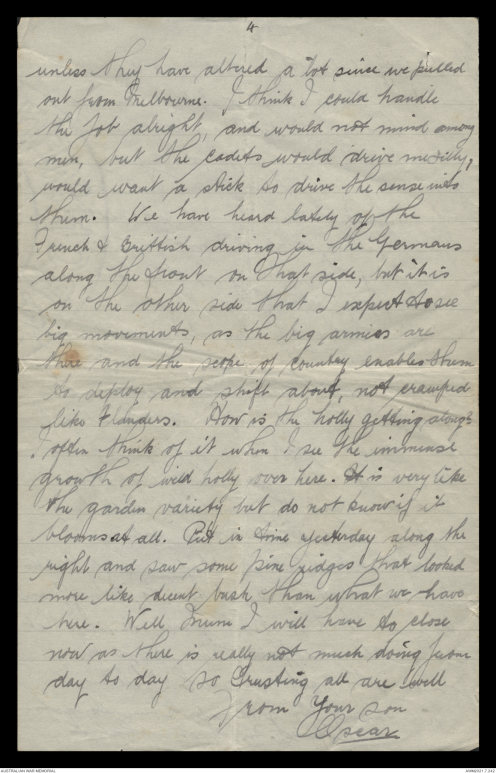 4
unless they have altered a lot since we pulled
out from Melbourne. I think I could handle
the job alright, and would not mind among
men, but the cadets would drive me silly,
would want a stick to drive the sense into
them. We have heard lately of the
French & Brittish driving in the Germans
along the front on that side, but it is
on the other side that I expect to see
big movements, as the big armies are
there and the scope of country enables them
to deploy and shift about, not cramped
like Flanders. How is the holly getting along?
I often think of it when I see the immense
growth of wild holly over here. It is very like
the garden variety but do not know if it
blooms at all. Put in time yesterday along the
right and saw some pine ridges that looked
more like decent bush than what we have
here. Well Mum I will have to close
now as there is really not much doing from
day to day so trusting all are well
from Your son
Oscar
AUSTRALIAN WAR MEMORIAL